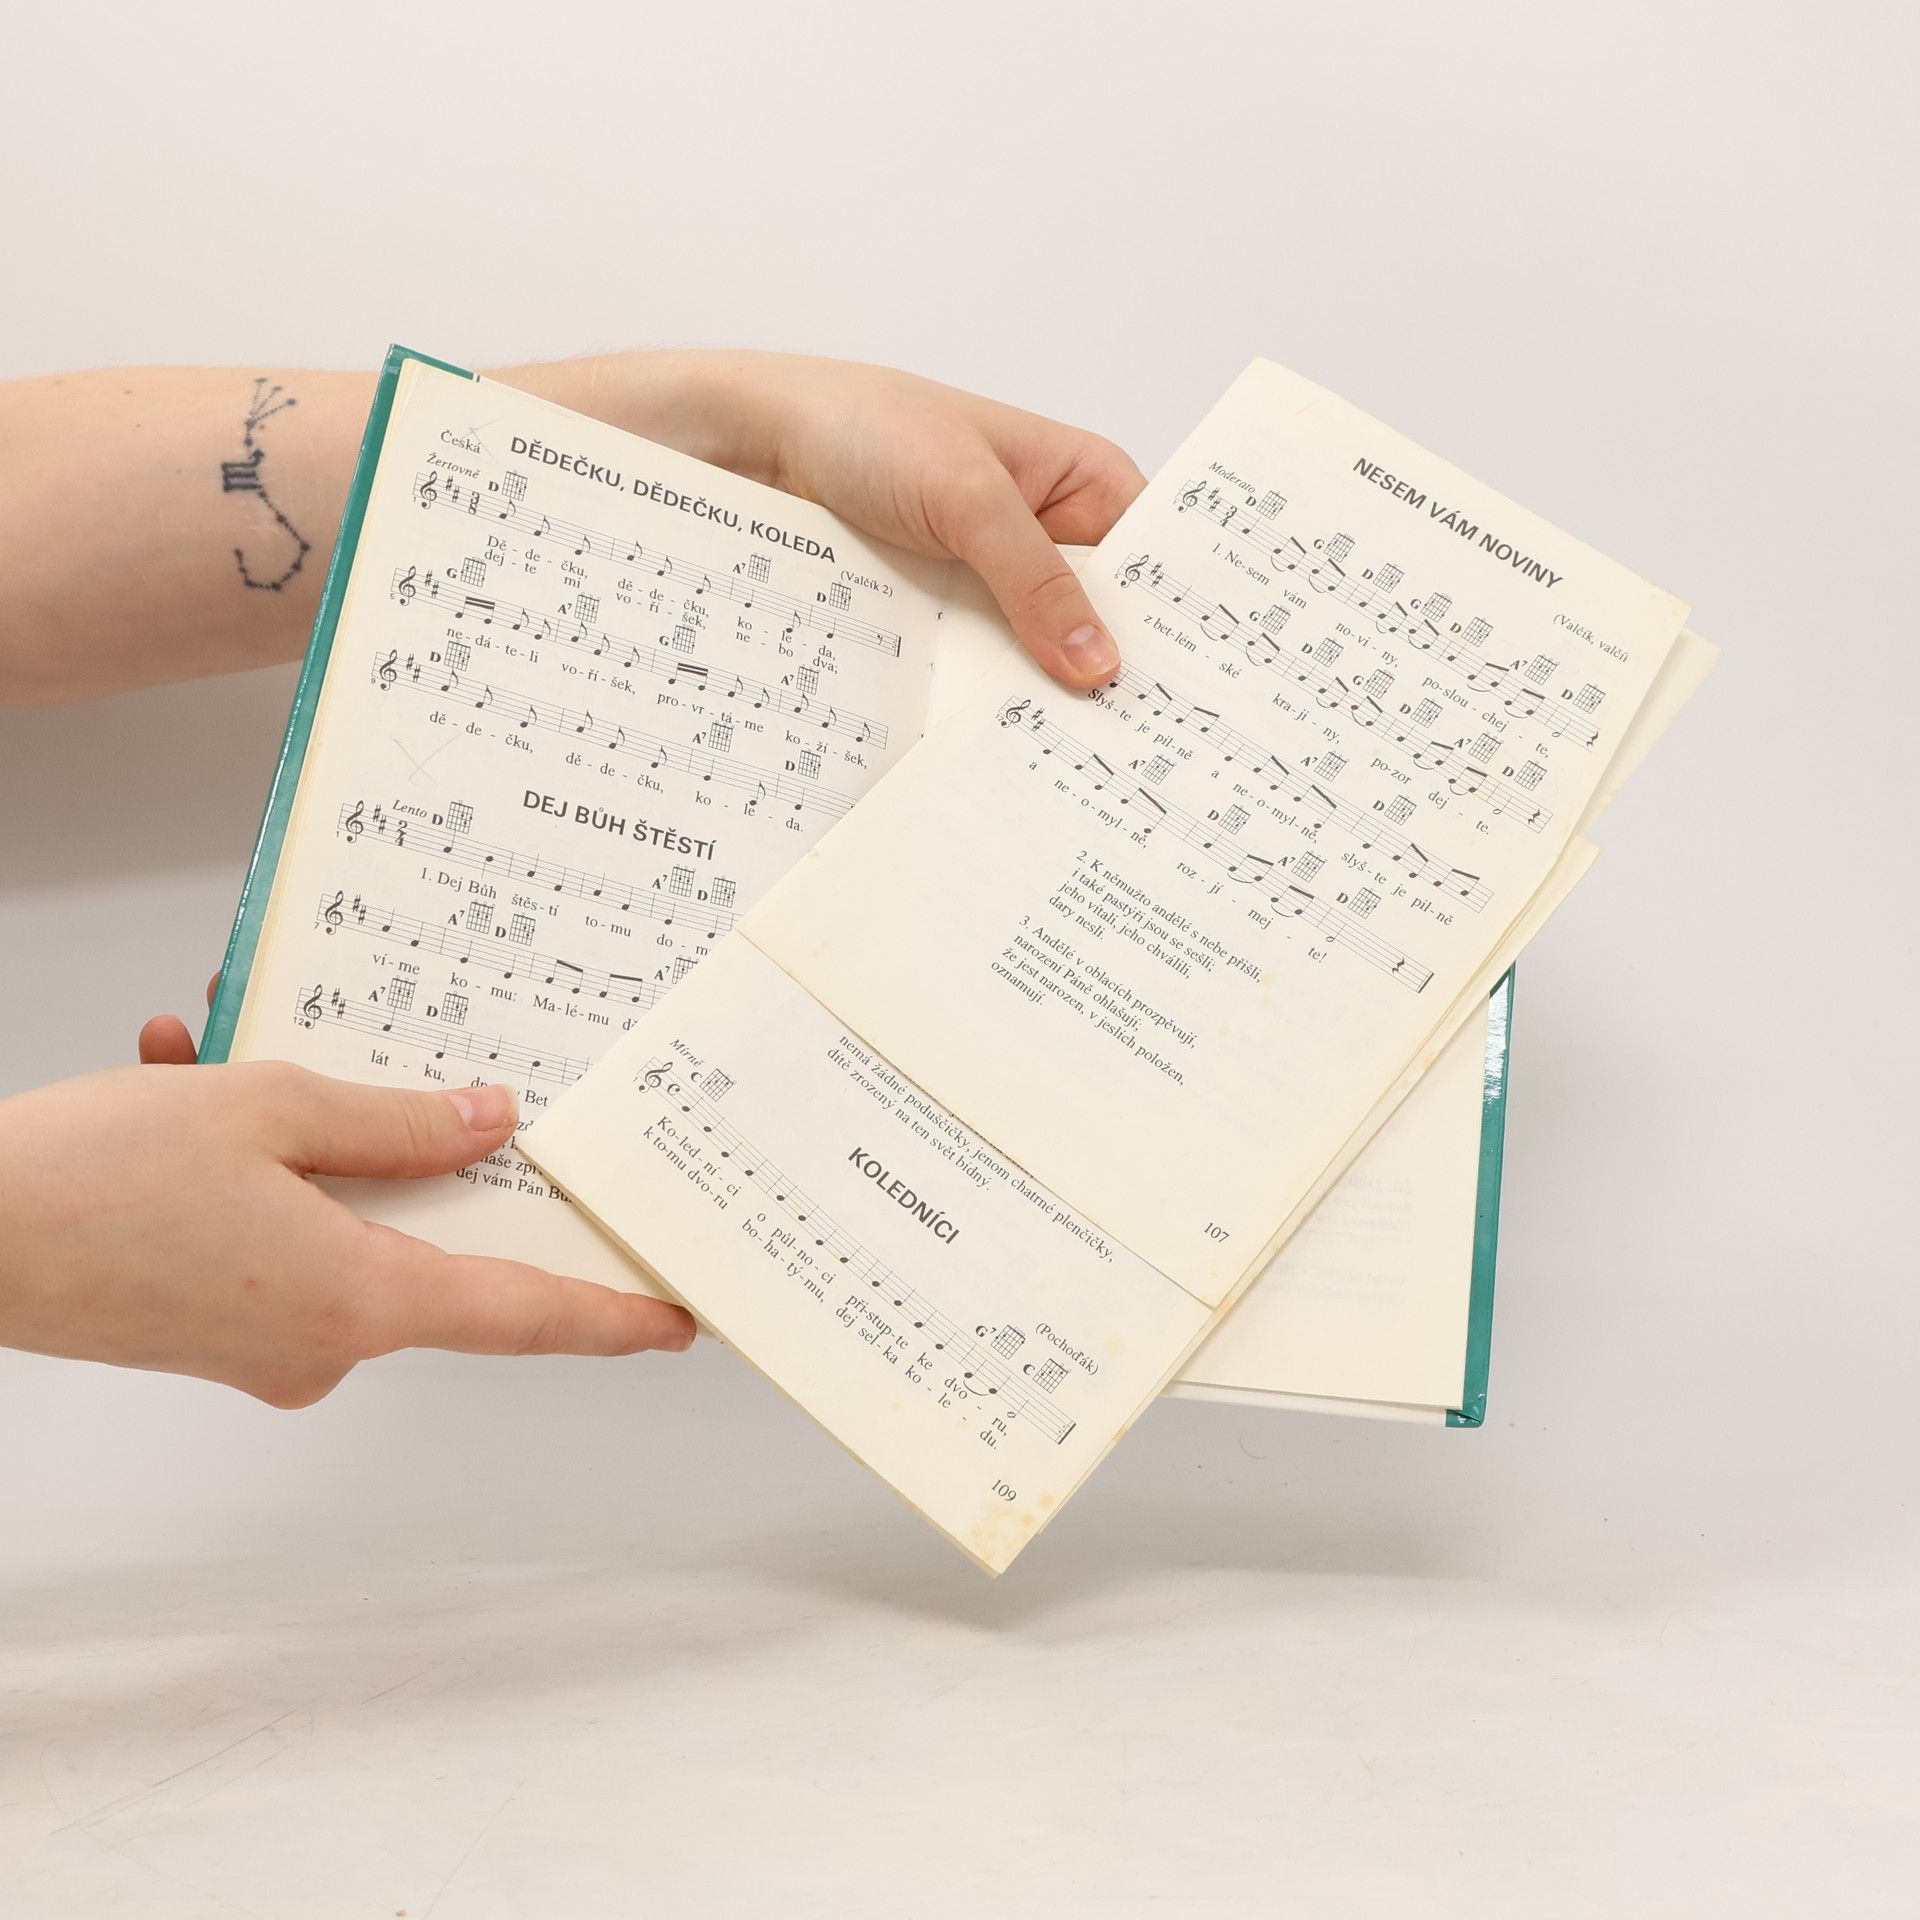 Česká
DĚDEČKU, DĚDEČKU, KOLEDA
Žertovně
(Valčík 2)
D A⁷ D
Dě - de - čku, dě - de - čku, ko - le - da,
dej - te mi vo - ří - šek, ne - bo dva;
G A⁷ G A⁷
ne - dá - te - li vo - ří - šek, pro - vr - tá - me ko - ži - šek,
D A⁷ D
dě - de - čku, dě - de - čku, ko - le - da.
DEJ BŮH ŠTĚSTÍ
Lento
D A⁷ D
1. Dej Bůh štěs - tí to - mu do -
A⁷ D A⁷
ví - me ko - mu: Ma - lé - mu
A⁷ D
lát - ku, Bet
naše
dej vám Pán
NESEM VÁM NOVINY
Moderato
(Valčík, valčí
D G D G D A⁷ D
1. Ne - sem vám no - vi - ny, po - slou - chej - te,
G D G D A⁷ D
z bet - lém - ské kra - ji - ny, po - zor dej - te.
A⁷ D
Slyš - te je pil - ně a ne - o - myl - ně, slyš - te je pil - ně
A⁷ D A⁷ D
a ne - o - myl - ně, roz - jí - mej - te!
2. K němužto andělé s nebe přišli,
i také pastýři jsou se sešli;
jeho vítali, jeho chválili,
dary nesli.
3. Andělé v oblacích prozpěvují,
narození Páně ohlašují;
že jest narozen, v jeslích položen,
oznamují.
107
nemá žádné podušcičky, jenom chatrné plenčičky,
dítě zrozený na ten svět bídný.
KOLEDNÍCI
Mírně
(Pochoďák)
C G⁷ C
Ko - led - ní - ci o půl - no - ci při - stup - te ke dvo - ru,
k to - mu dvo - ru bo - ha - tý - mu, dej sel - ka ko - le - du.
109